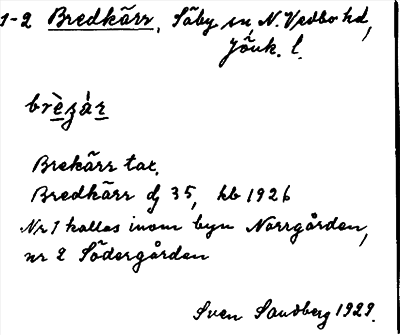 1-2 Bredkärr, Säby sn, N. Vedbo hd,
Jönk. l.
brèʒár
Brekärr tax.
Bredkärr dj 35, hb 1926
Nr 1 kallas inom byn Norrgården,
nr 2 Södergården
Sven Sandberg 1929.